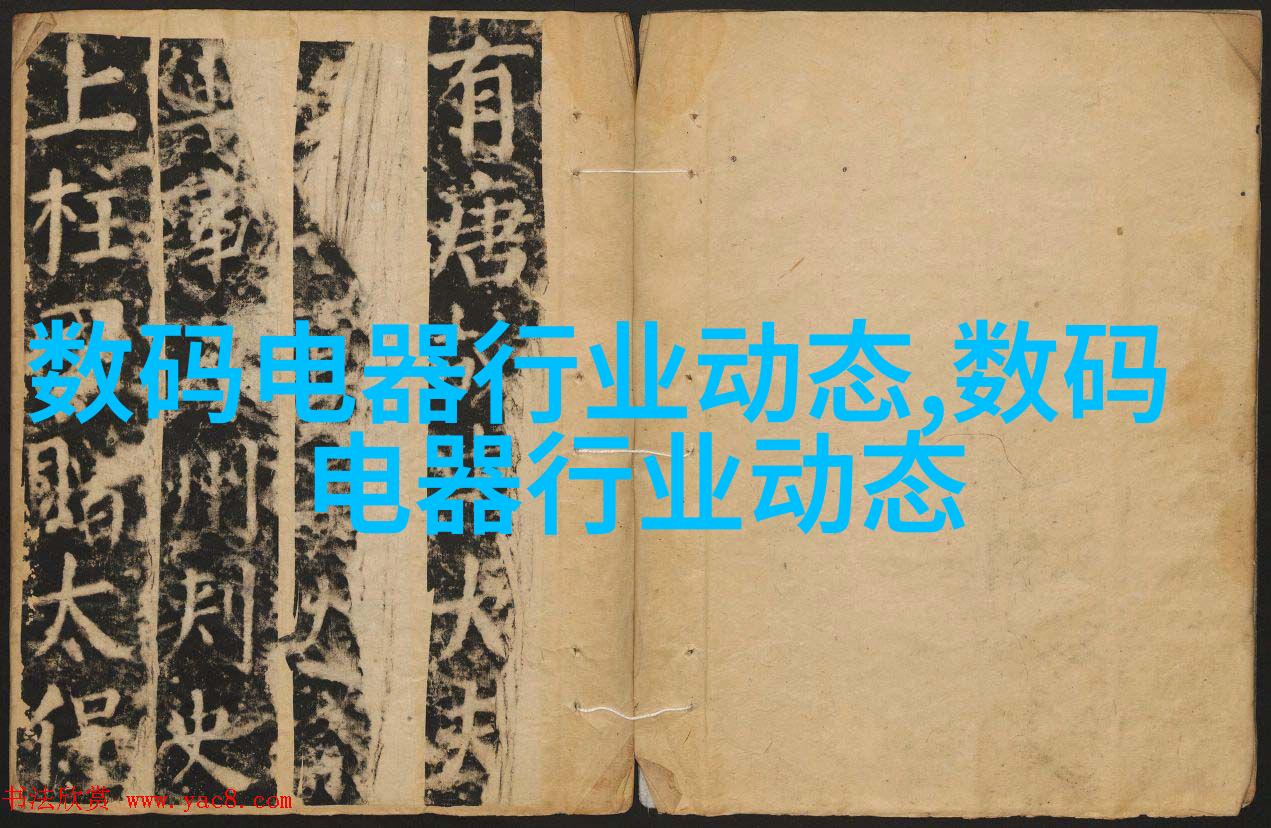 数码电器行业动态,数码
电器行业动态
有唐大夫
軍州刺史
上柱國贈太保
书法欣赏 www.yac8.com